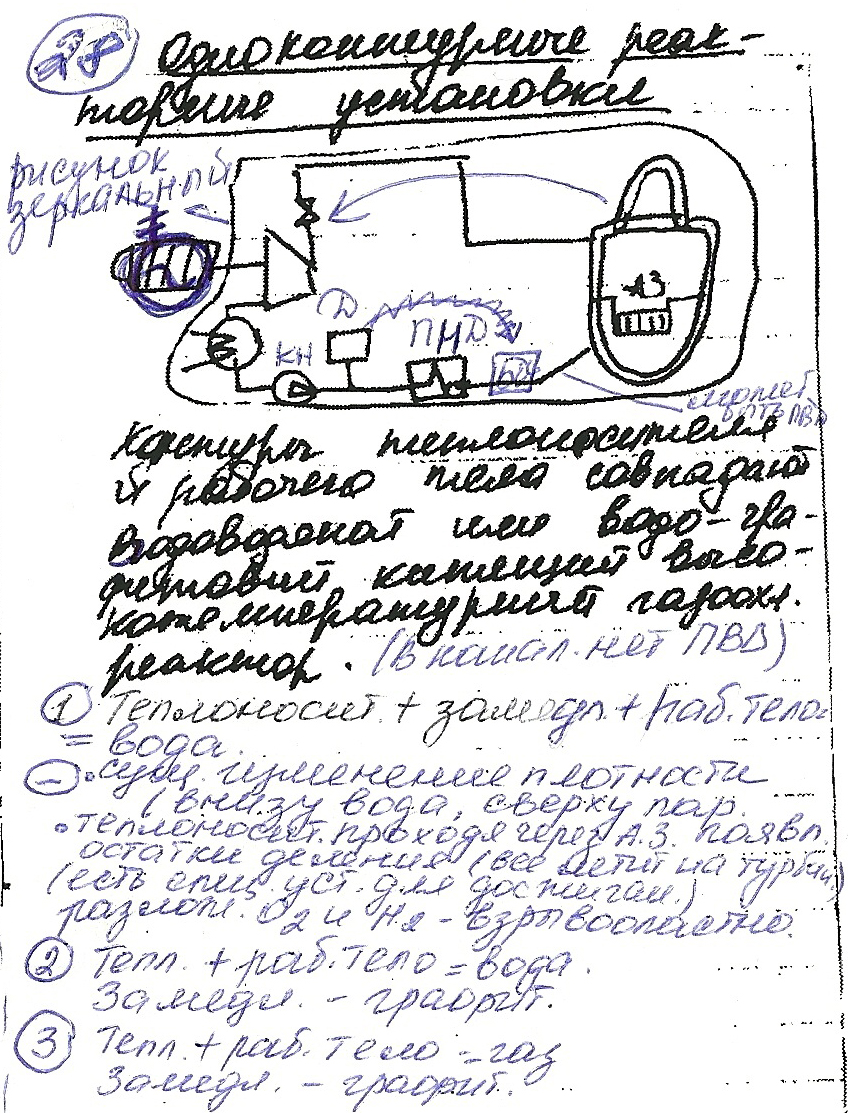 28
Одноконтурные реак-
торные установки
рисунок
зеркальный
АЗ
Д
ПНД
КН
может
быть ПВД
Контуры теплоносителя
и рабочего тела совпадают
Водоводяной или водо-гра-
фитовый кипящий высо-
котемпературный газоохл.
реактор. (В канал. нет ПВД)
① Теплоносит + замедл. + раб. тело =
= вода.
⊖ • сущ. изменение плотности
(внизу вода, сверху пар.
• теплоносит. проходя через А.З. появл.
остатки деления (все летит на турбин.)
(есть спец. уст. для дожиган.)
разлож. O2 и H2 - взрывоопастно.
② Тепл. + раб. тело = вода.
Замедл. - графит.
③ Тепл. + раб. тело = газ
Замедл. - графит.